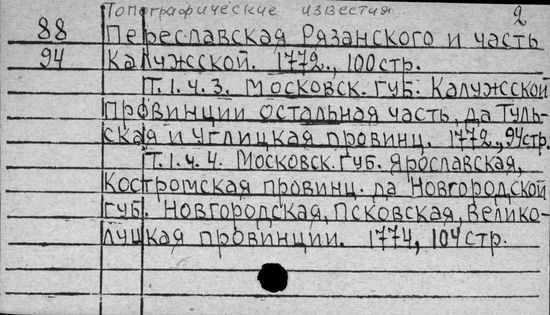 Топографические известия 2
88 Переславская Рязанского и часть
94 Калужской. 1772., 100стр.
Т.1.ч.3. Московск. губ. Калужской
провинции остальная часть, да Туль-
ская и Углицкая провинц. 1772., 94стр.
Т.1.ч.4. Московск. губ. Ярославская,
Костромская провинц. да Новгородской
губ. Новгородская, Псковская, Велико-
луцкая провинции. 1774, 104стр.